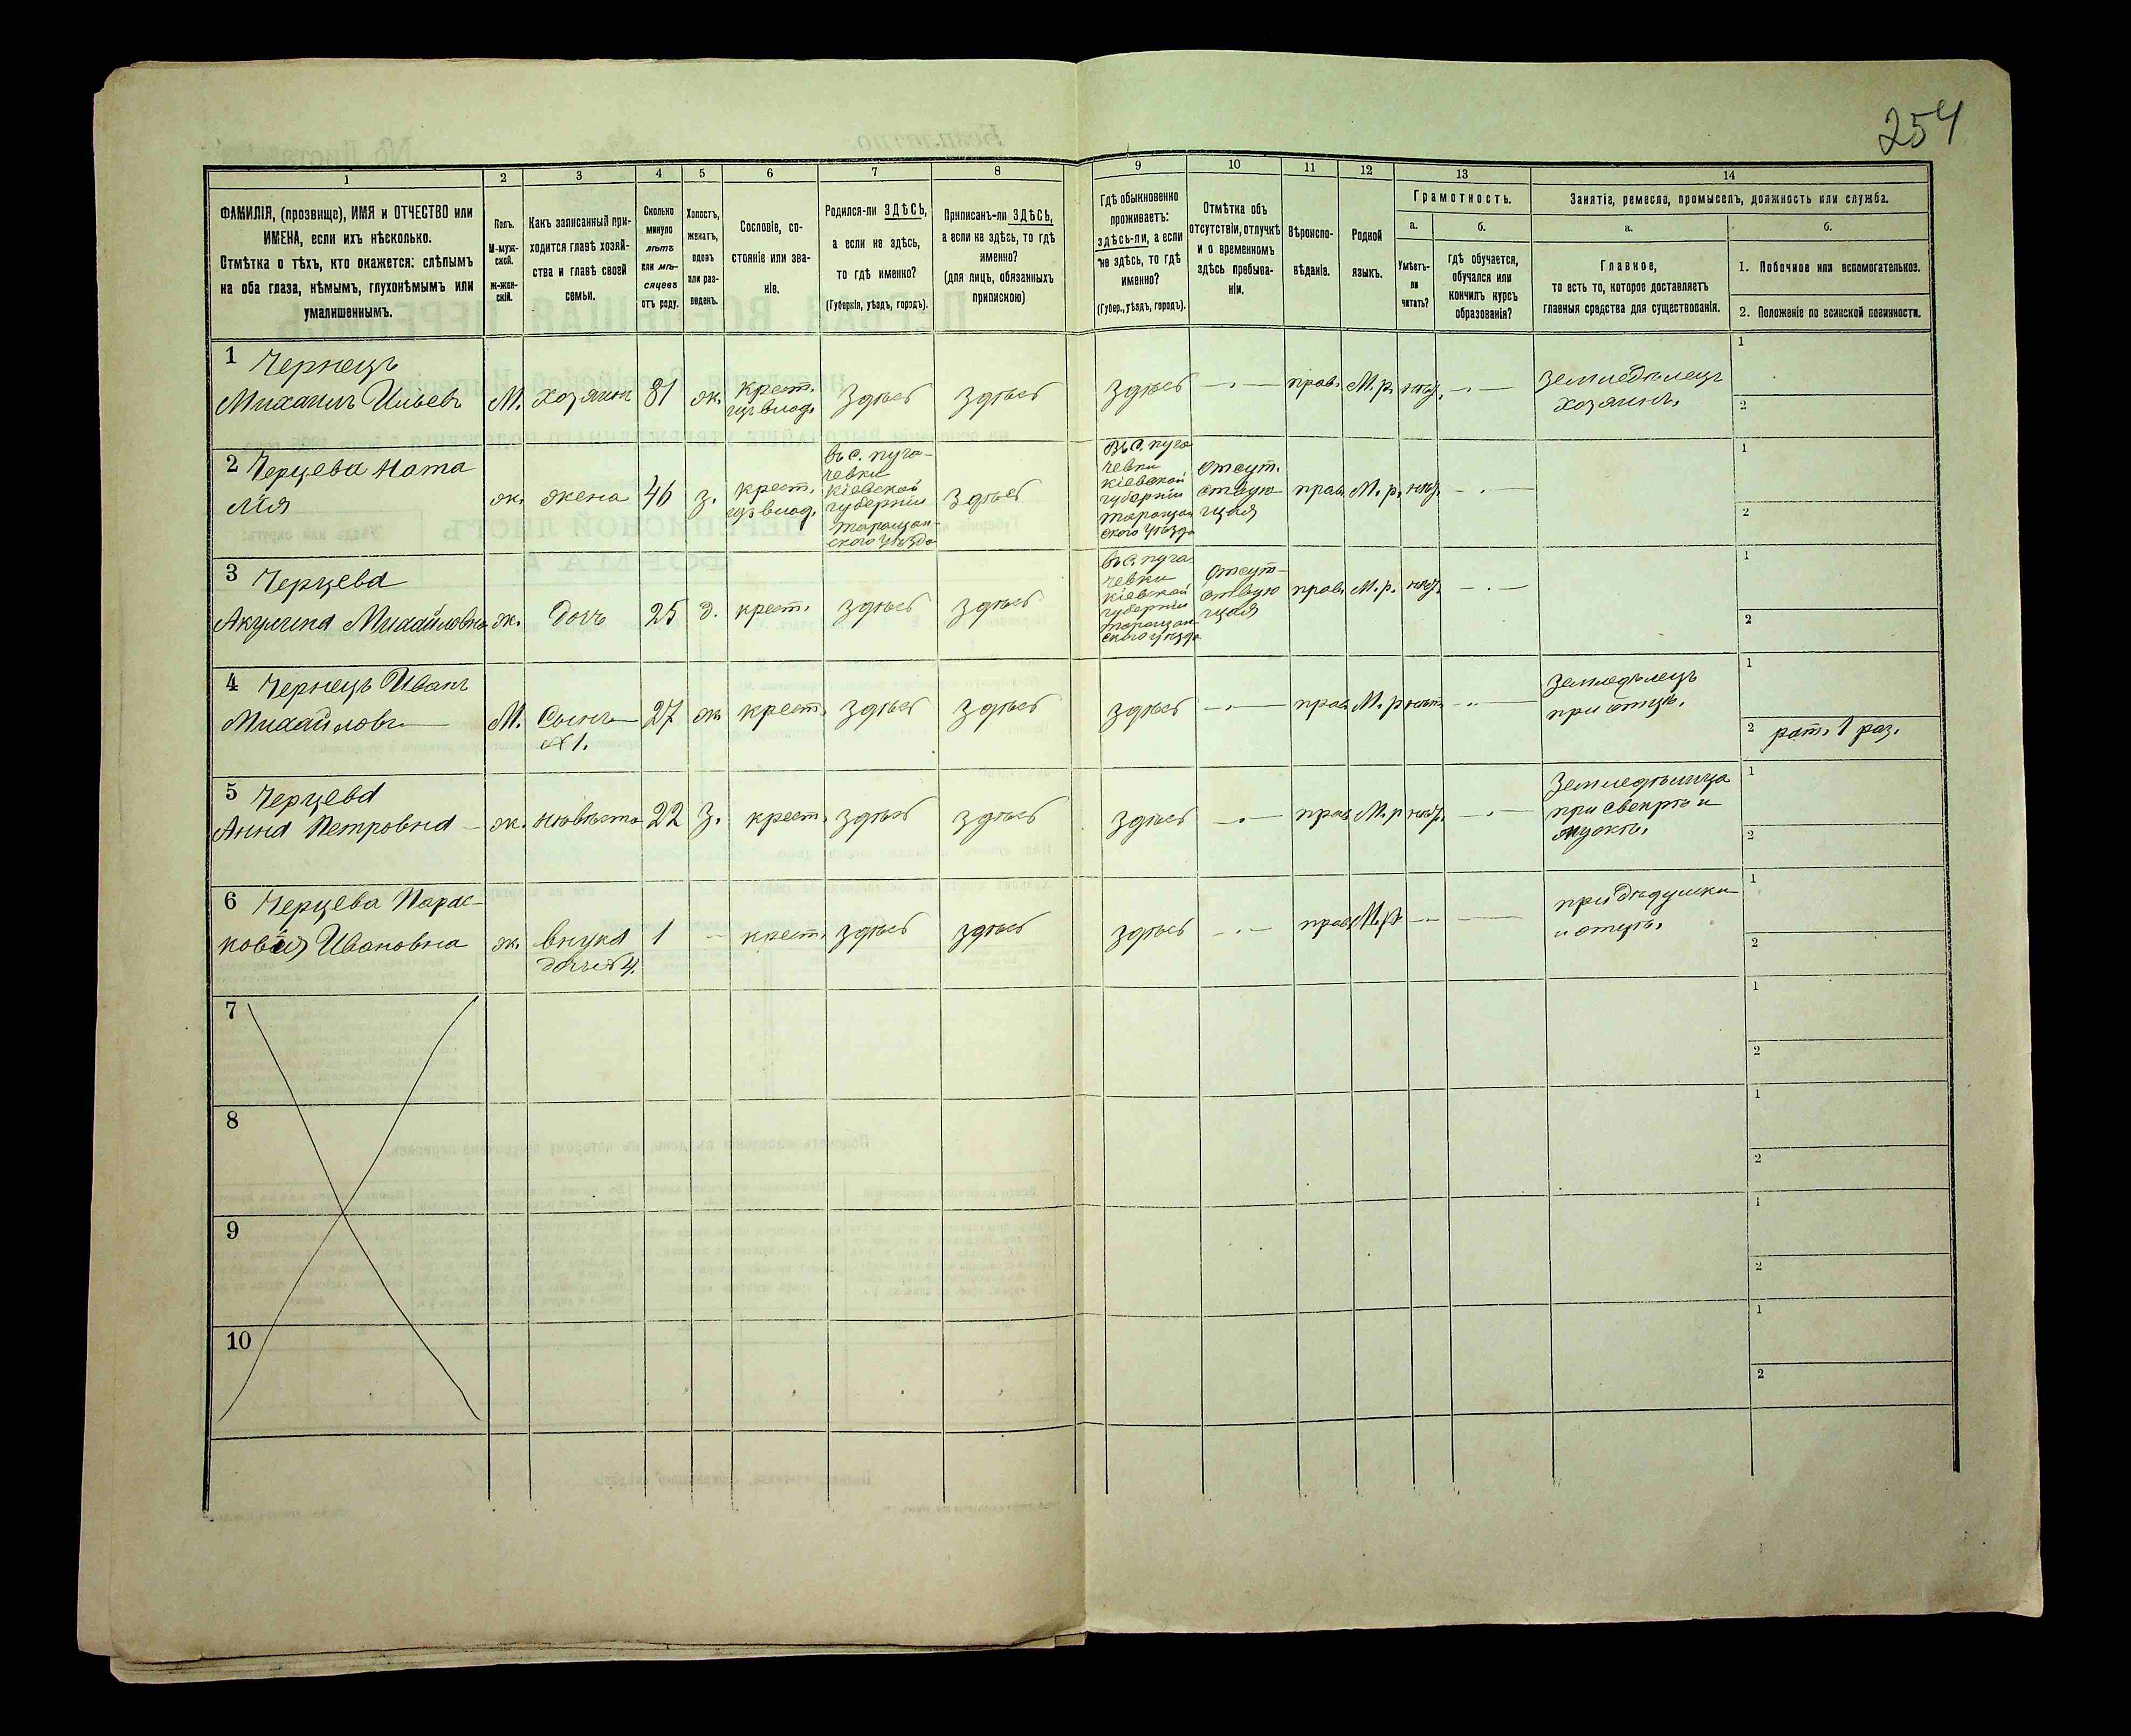 254
1
2
3
4
5
6
7
8
9
10
11
12
13
14
ФАМИЛІЯ, (прозвище), ИМЯ и ОТЧЕСТВО или
ИМЕНА, если ихъ нѣсколько.
Отмѣтка о тѣхъ, кто окажется: слѣпымъ
на оба глаза, нѣмымъ, глухонѣмымъ или
умалишеннымъ.
Полъ.
М-муж-
ской.
Ж-жен-
скій.
Какъ записанный при-
ходится главѣ хозяй-
ства и главѣ своей
семьи.
Сколько
минуло
лѣтъ
или мѣ-
сяцевъ
отъ роду.
Холостъ,
женатъ,
вдовъ
или раз-
веденъ.
Сословіе, со-
стояніе или зва-
ніе.
Родился-ли ЗДѢСЬ,
а если не здѣсь,
то гдѣ именно?
(Губернія, уѣздъ, городъ).
Приписанъ-ли ЗДѢСЬ,
а если не здѣсь, то гдѣ
именно?
(для лицъ, обязанныхъ
припискою)
Гдѣ обыкновенно
проживаетъ:
здѣсь-ли, а если
не здѣсь, то гдѣ
именно?
(Губер., уѣздъ, городъ).
Отмѣтка объ
отсутствіи, отлучкѣ
и о временномъ
здѣсь пребыва-
ніи.
Вѣроиспо-
вѣданіе.
Родной
языкъ.
Грамотность.
а.
Умѣетъ-
ли
читать?
б.
гдѣ обучается,
обучался или
кончилъ курсъ
образованія?
Занятія, ремесло, промыселъ, должность или служба.
а.
Главное,
то есть то, которое доставляетъ
главныя средства для существованія.
б.
1. Побочное или вспомогательное.
2. Положеніе по воинской повинности.
1 Чернецъ
Михаилъ Ильевъ
М.
хозяинъ
81
ж.
крест.
изъ влад.
здѣсь
здѣсь
здѣсь
— . —
прав.
М.р.
нѣт.
— . —
земледѣлецъ
хозяинъ.
1
2
2 Черцева Ната
лія
ж.
жена
46
з.
крест.
изъ влад.
въ с. пуга-
чевки
кіевской
губерніи
таращан-
ского уѣзда
здѣсь
въ с. пуга
чевки
кіевской
губерніи
таращан
ского уѣзда
отсут.
ствую-
щая
прав.
М.р.
нѣт.
— . —
1
2
3 Черцева
Акулина Михайловна
ж.
дочь
25
д.
крест.
здѣсь
здѣсь
въ с. пуга
чевки
кіевской
губерніи
таращан
ского уѣзда
отсут-
ствую
щая
прав.
М.р.
нѣт.
— . —
1
2
4 Чернецъ Иванъ
Михайловъ
М.
Сынъ
№ 1.
27
ж.
крест.
здѣсь
здѣсь
здѣсь
— . —
прав.
М.р.
нѣт.
— . —
земледѣлецъ
при отцѣ.
1
2 рат. 1 раз.
5 Черцева
Анна Петровна
ж.
невѣста
22
з.
крест.
здѣсь
здѣсь
здѣсь
— . —
прав.
М.р.
нѣт.
— . —
при свекрѣ и
мужѣ.
1
2
6 Черцева Парас-
ковія Ивановна
ж.
внука
дочь № 4.
1
—
крест.
здѣсь
здѣсь
здѣсь
— . —
прав.
М.р.
—
—
при дѣдушки
и отцѣ.
1
2
7
1
2
8
1
2
9
1
2
10
1
2